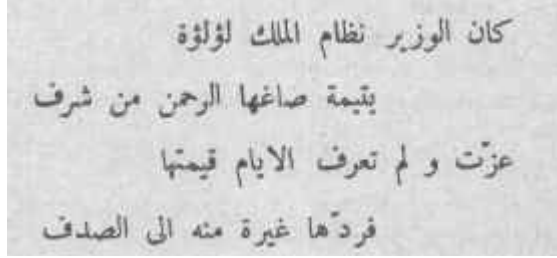 كان الوزير نظام الملك لؤلؤة
يتيمة صاغها الرحمن من شرف
عزّت و لم تعرف الايام قيمتها
فردّها غيرة منه الى الصدف